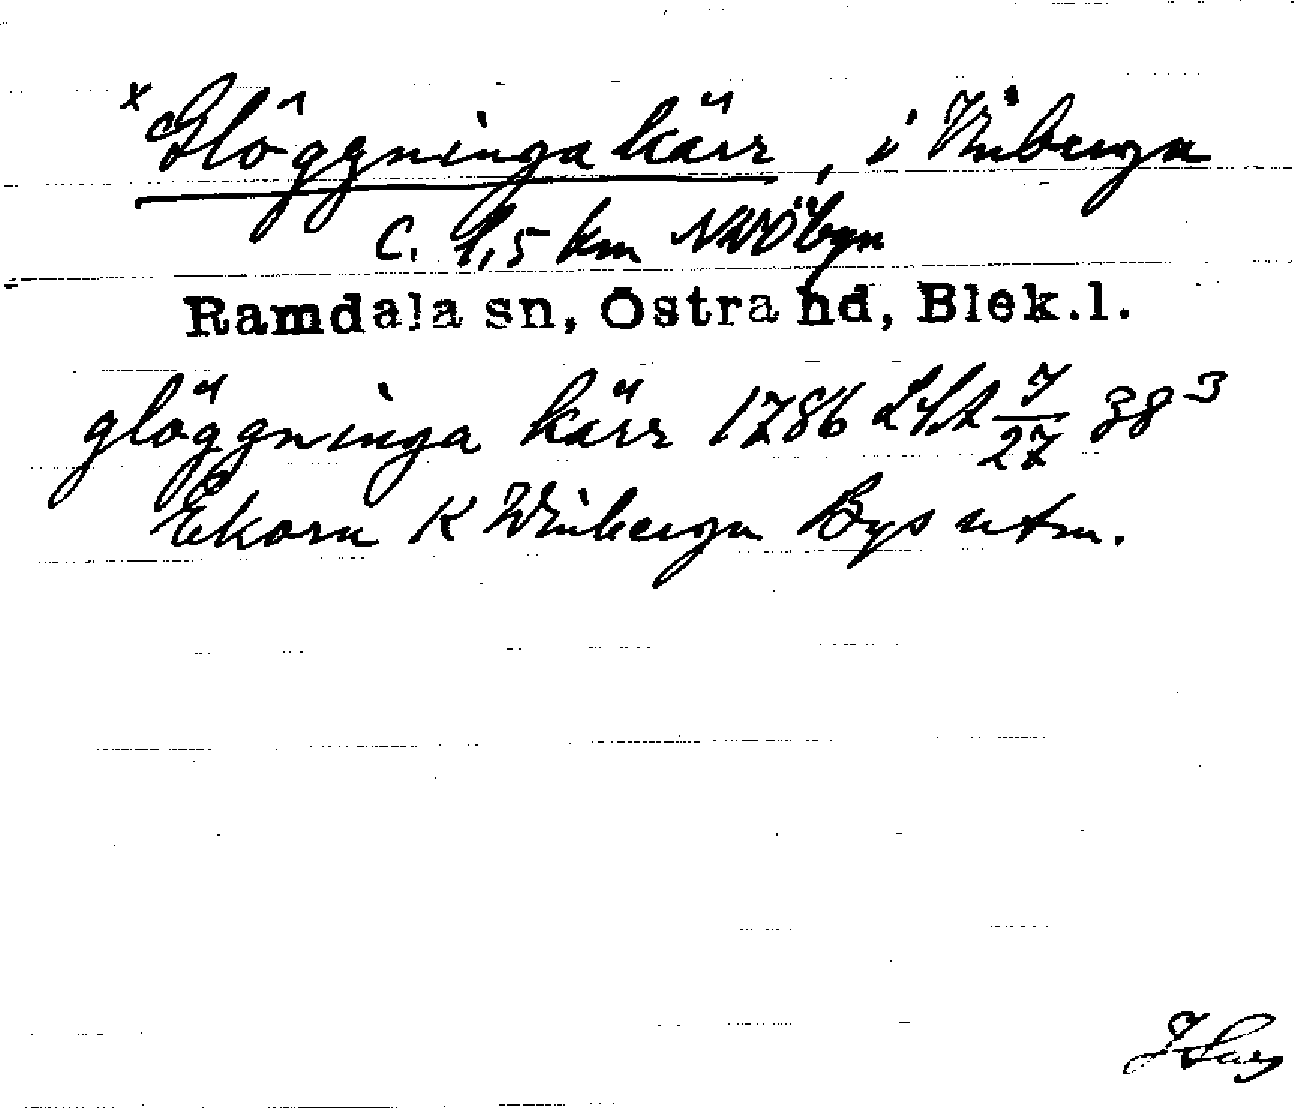 x Glöggninga kärr, i Vinberga
c. 1,5 km NVÖ byn
Ramdala sn, Östra hd, Blek.l.
glöggninga kärr 1786 LSA 7/27 38³
Ekorn K Winberga Bys utm.